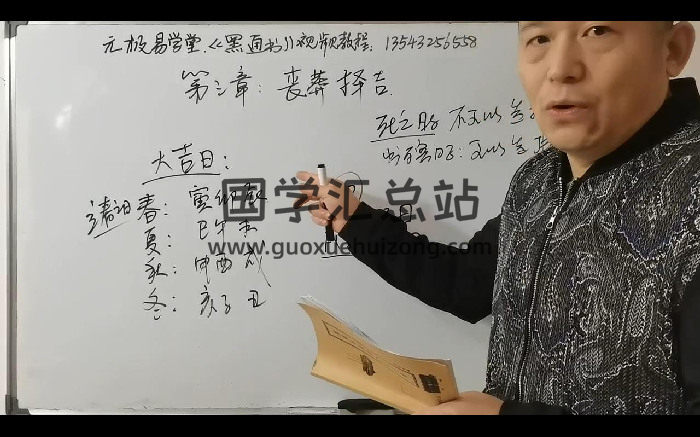 元极易学堂《黑通书》视频教程：13543256558
第三章：丧葬择吉
死之时 不可以
出殡时：可以
大吉日：
诸日 春：寅卯辰
夏：巳午未
秋：申酉戌
冬：亥子丑
国学汇总站
www.guoxuehuizong.com